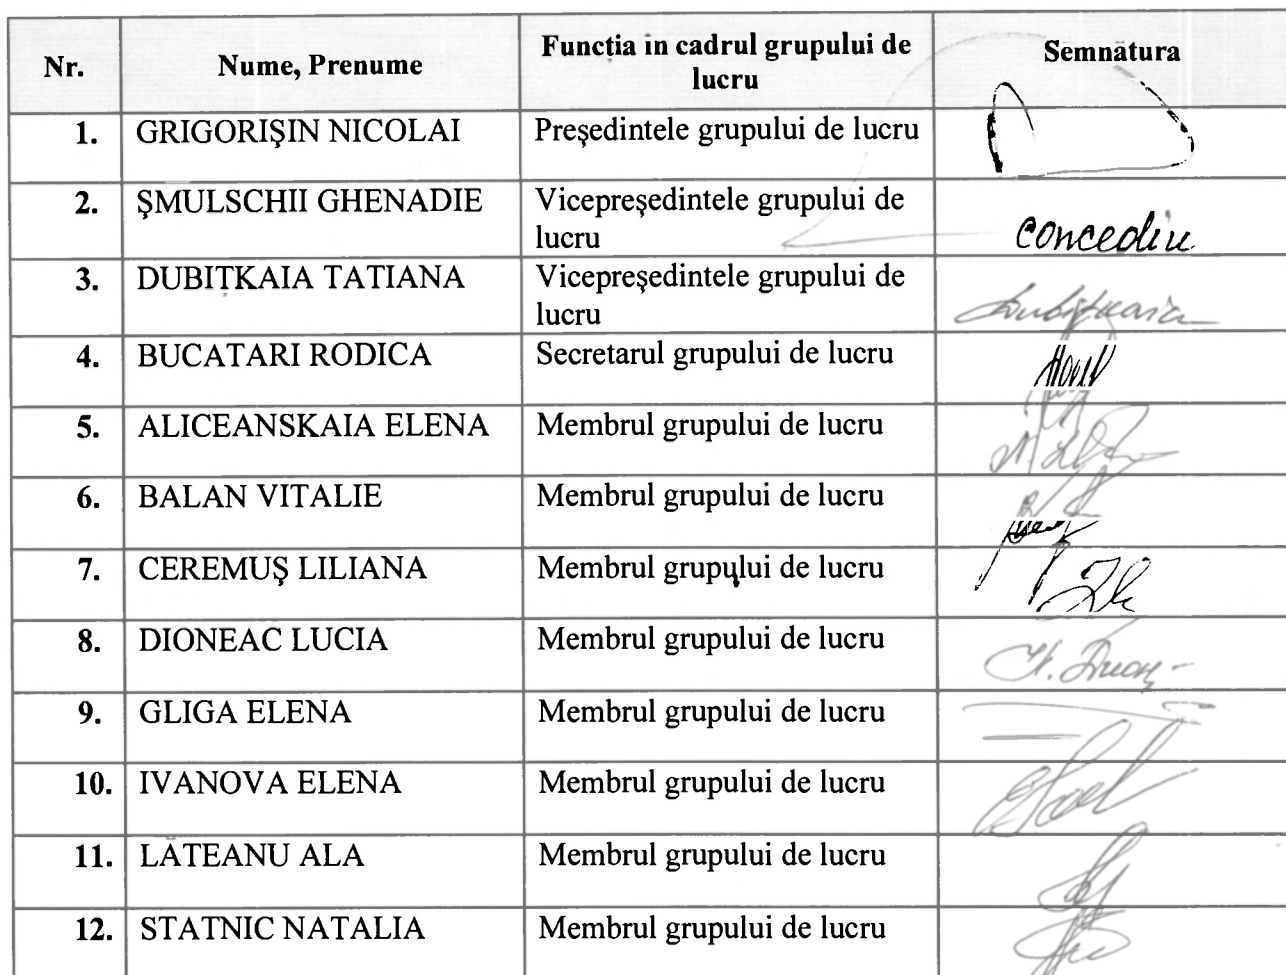 Nr.
Nume, Prenume
Funcția în cadrul grupului de
lucru
Semnătura
1.
GRIGORIȘIN NICOLAI
Președintele grupului de lucru
2.
ȘMULSCHII GHENADIE
Vicepreședintele grupului de
lucru
concediu
3.
DUBIȚKAIA TATIANA
Vicepreședintele grupului de
lucru
4.
BUCATARI RODICA
Secretarul grupului de lucru
5.
ALICEANSKAIA ELENA
Membrul grupului de lucru
6.
BALAN VITALIE
Membrul grupului de lucru
7.
CEREMUȘ LILIANA
Membrul grupului de lucru
8.
DIONEAC LUCIA
Membrul grupului de lucru
9.
GLIGA ELENA
Membrul grupului de lucru
10.
IVANOVA ELENA
Membrul grupului de lucru
11.
LĂTEANU ALA
Membrul grupului de lucru
12.
STATNIC NATALIA
Membrul grupului de lucru